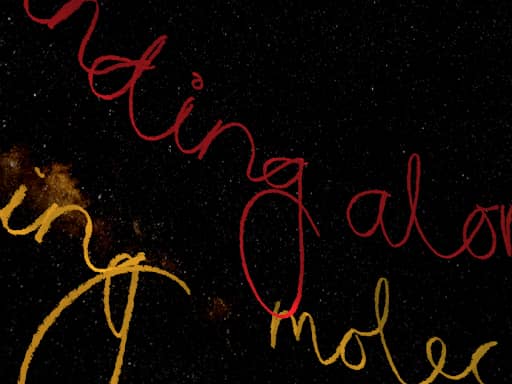 nding alon
ing molec